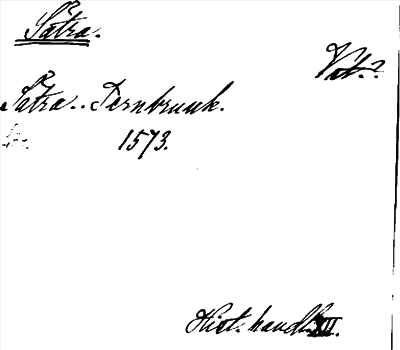 Sätra.
Vät.?
Sätra.. Jernbruuk.
1573.
Hist. handl. XII.